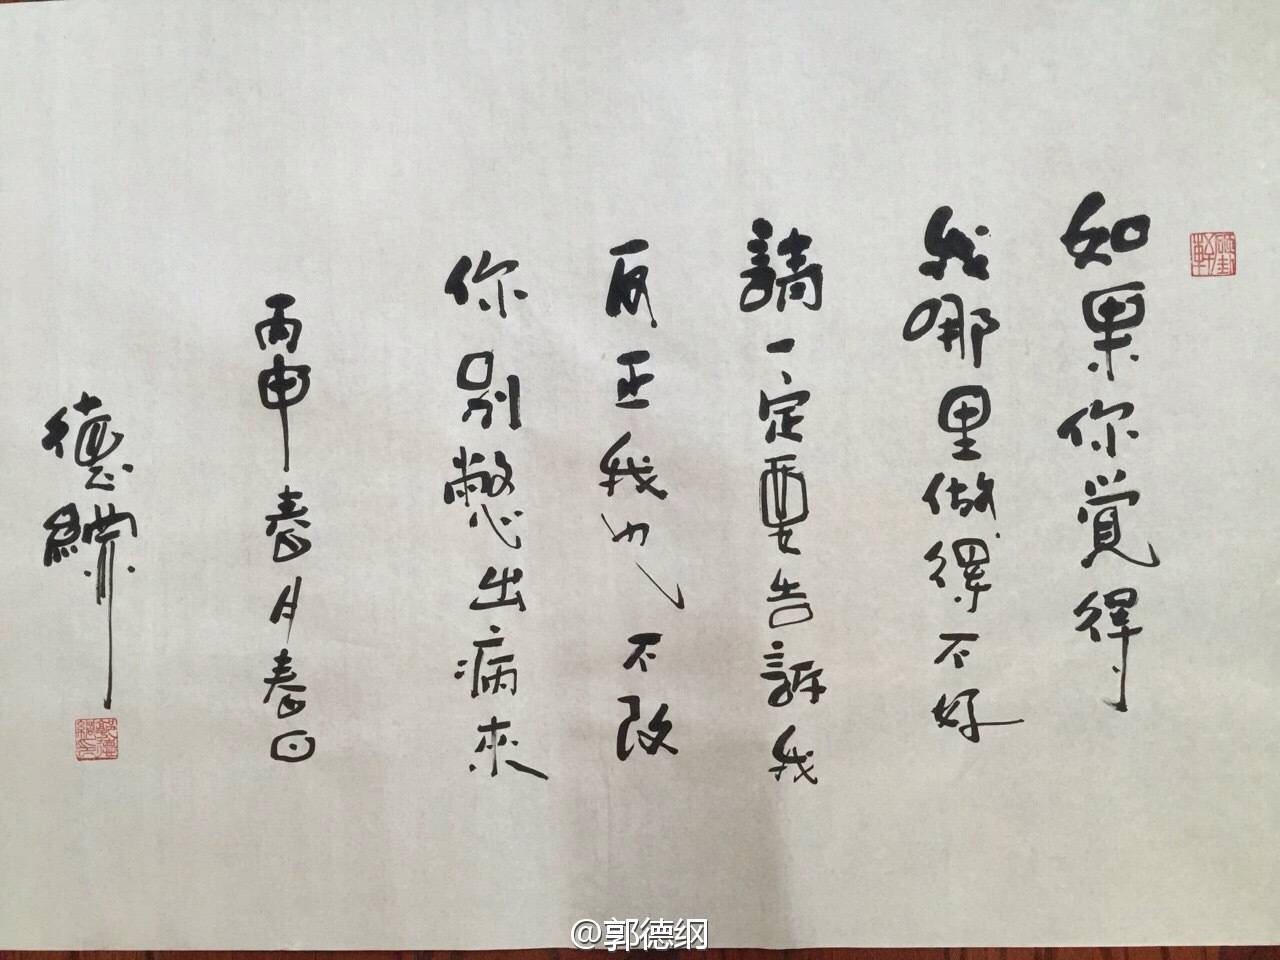 如果你覺得
我哪里做得不好
請一定要告訴我
反正我也不改
你别憋出病來
丙申春月春日
德綱
@郭德纲